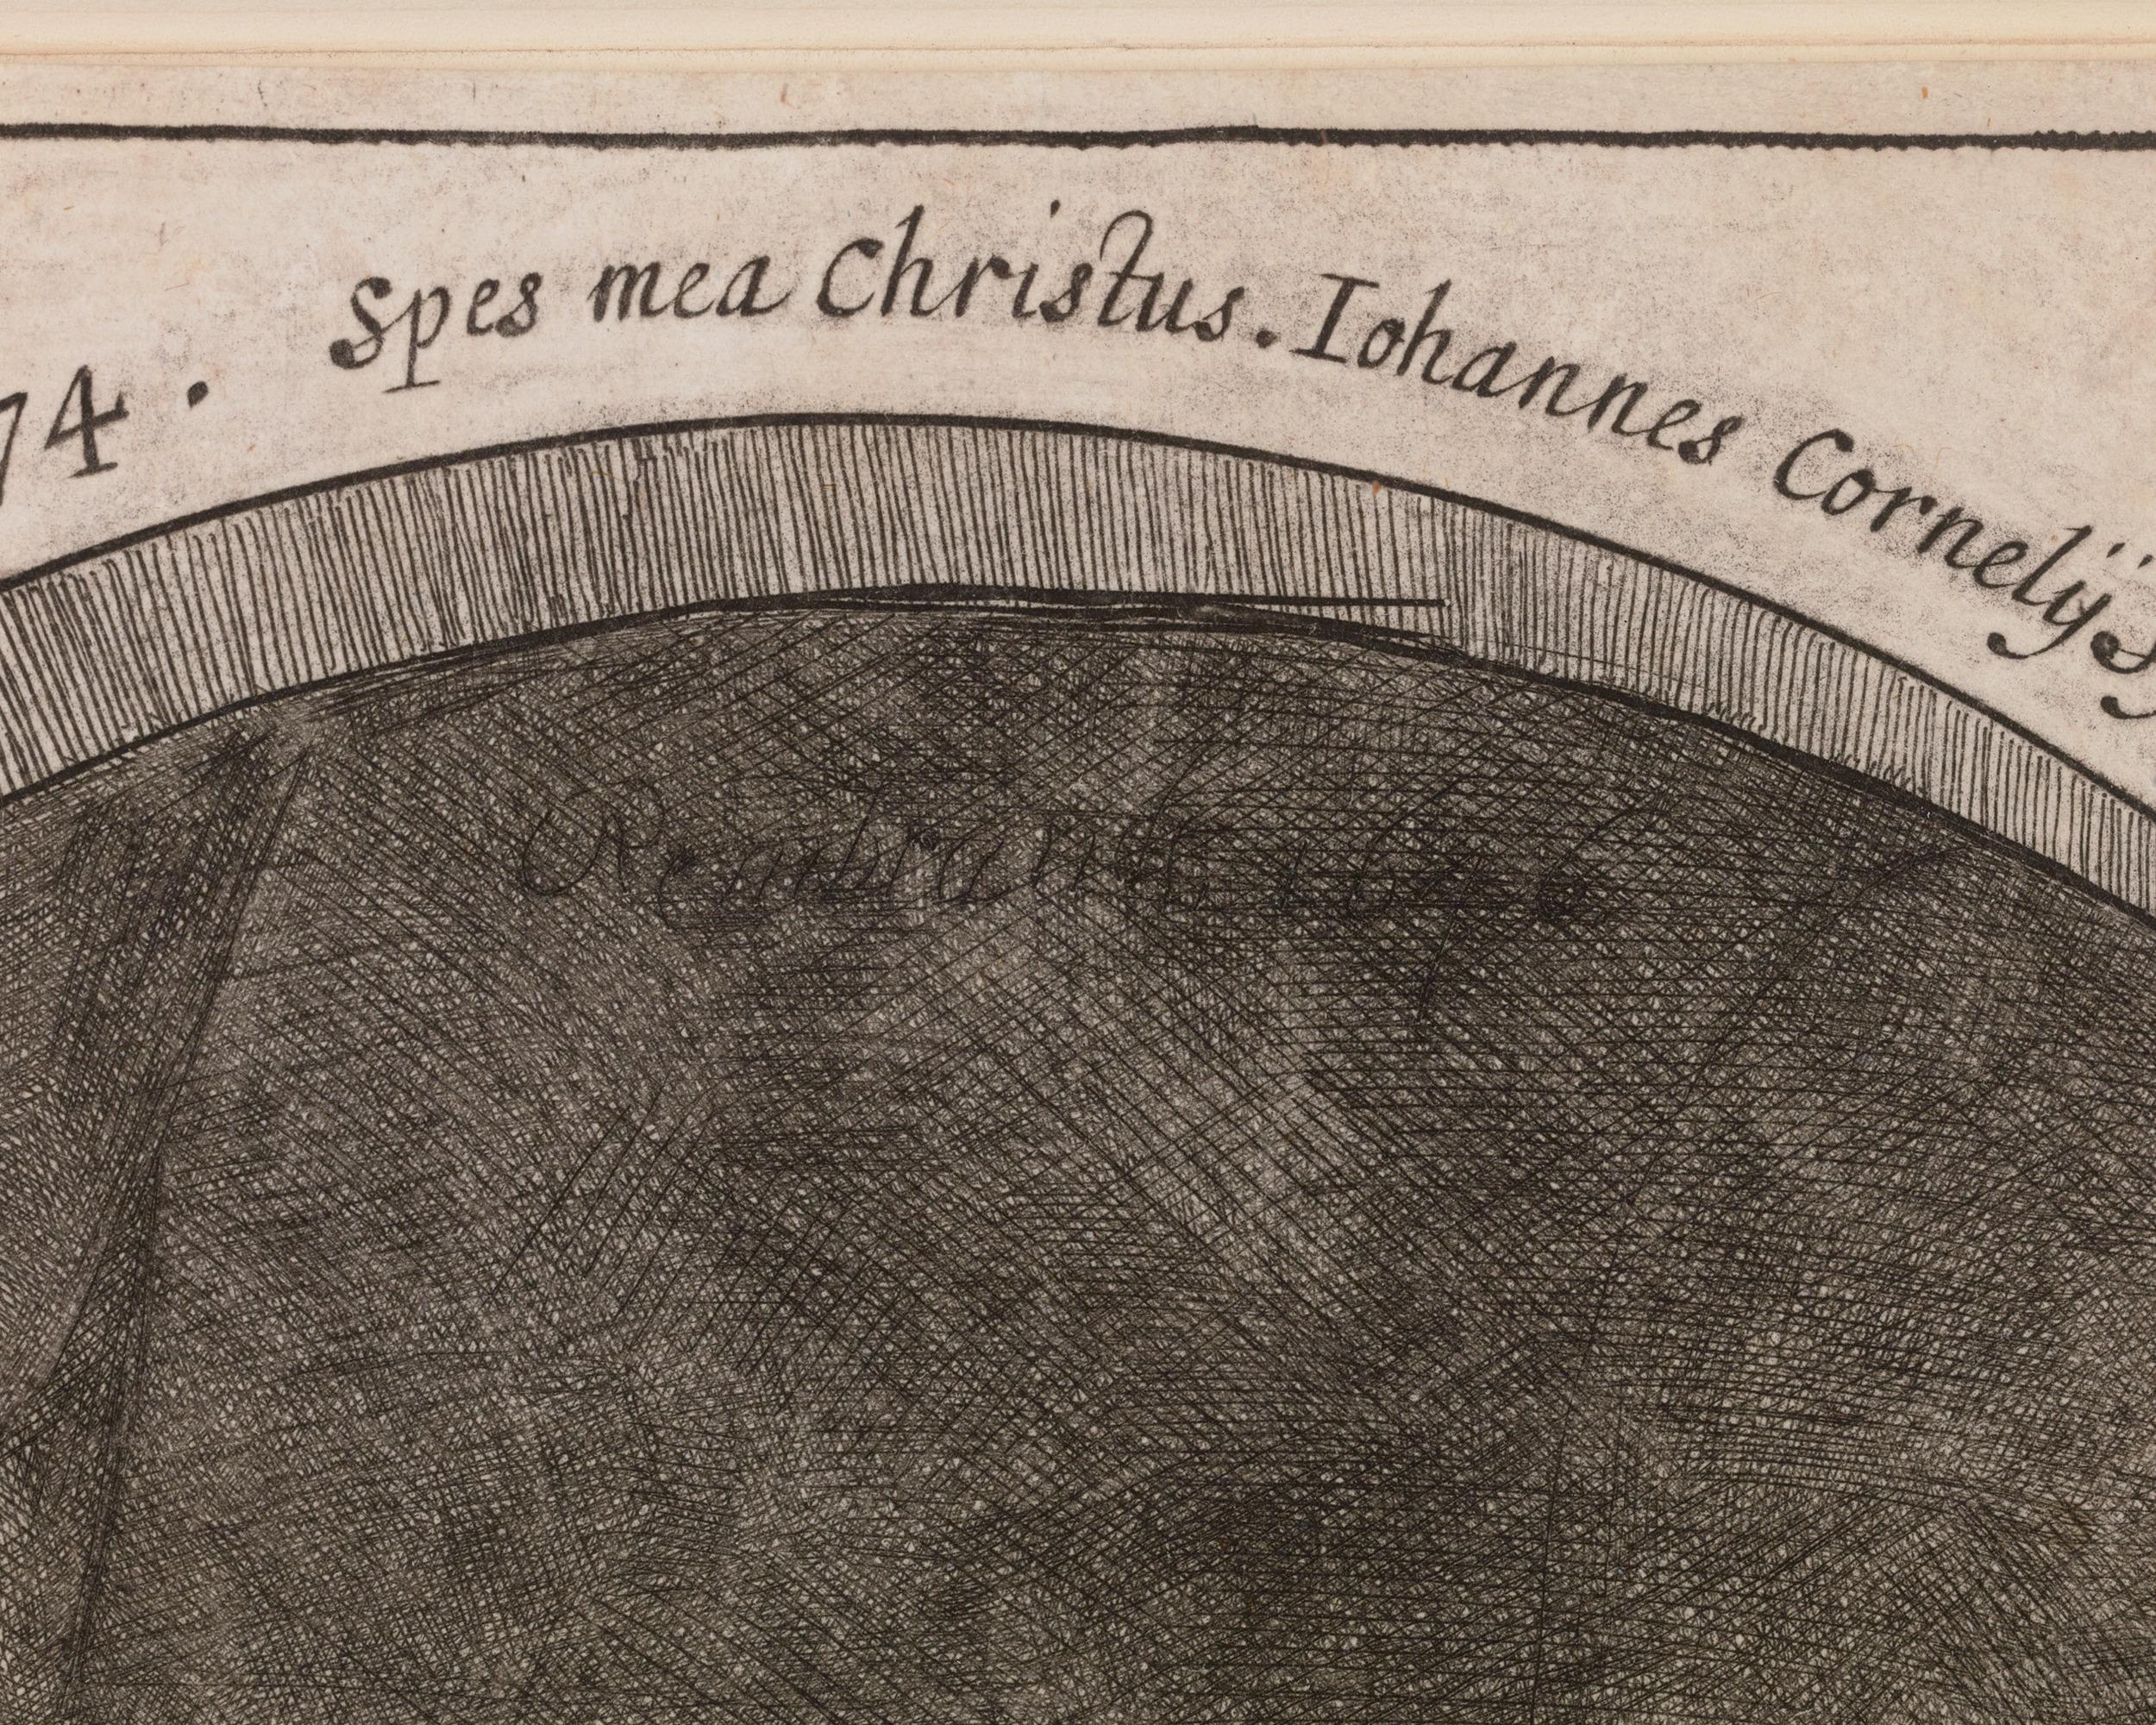 74. Spes mea Christus. Iohannes Cornelijs
Rembrandt.